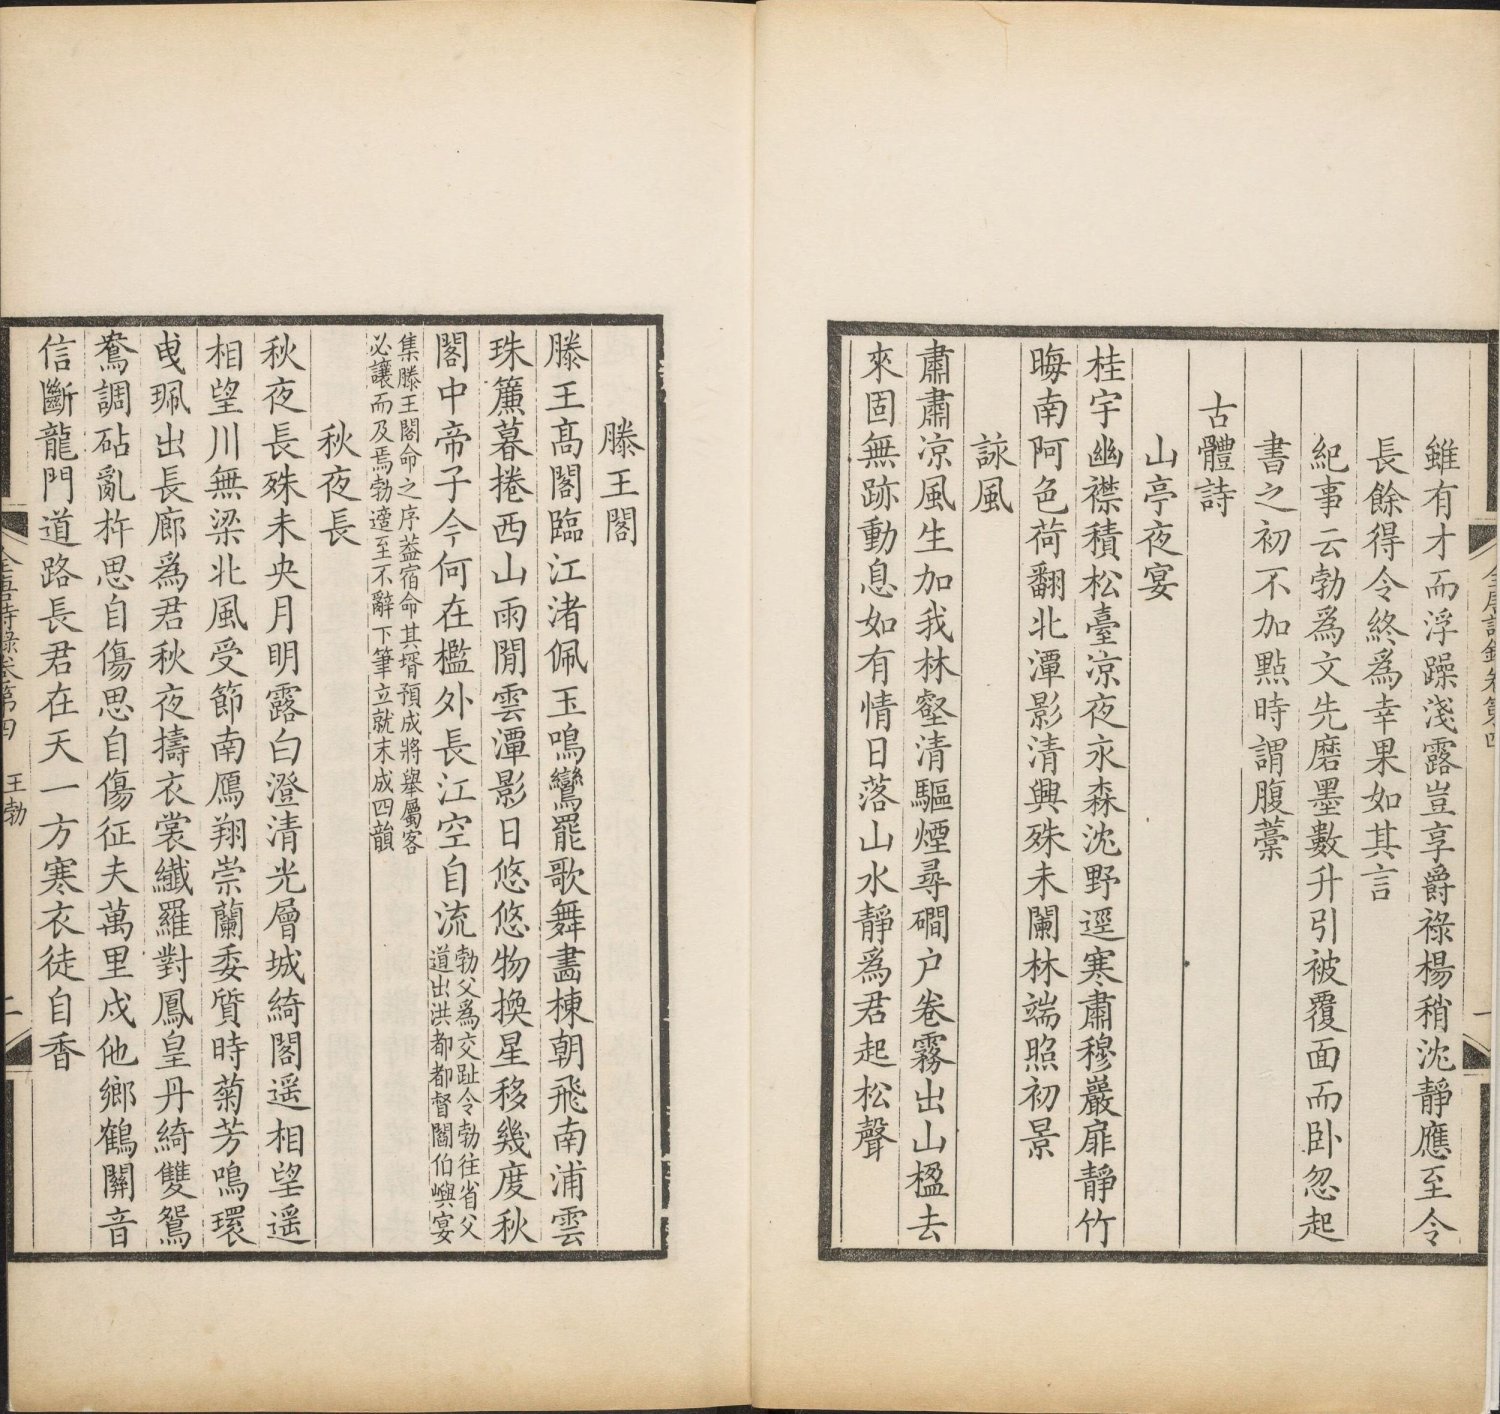 雖有才而浮躁淺露豈享爵祿楊稍沈靜應至令
長餘得令終爲幸果如其言
紀事云勃爲文先磨墨數升引被覆面而卧忽起
書之初不加點時謂腹藁
古體詩
山亭夜宴
桂宇幽襟積松臺凉夜永森沈野逕寒肅穆巖扉靜竹
晦南阿色荷翻北潭影清興殊未闌林端照初景
詠風
肅肅凉風生加我林壑清驅煙尋磵户卷霧出山楹去
來固無跡動息如有情日落山水靜爲君起松聲
滕王閣
滕王高閣臨江渚佩玉鳴鸞罷歌舞畫棟朝飛南浦雲
珠簾暮捲西山雨閒雲潭影日悠悠物換星移幾度秋
閣中帝子今何在檻外長江空自流勃父爲交趾令勃往省父
道出洪都都督閻伯嶼宴
集滕王閣命之序葢宿命其壻預成將舉屬客
必讓而及焉勃遽至不辭下筆立就末成四韻
秋夜長
秋夜長殊未央月明露白澄清光層城綺閣遥相望遥
相望川無梁北風受節南鴈翔崇蘭委質時菊芳鳴環
曳珮出長廊爲君秋夜擣衣裳纖羅對鳳皇丹綺雙鴛
鴦調砧亂杵思自傷思自傷征夫萬里戍他鄉鶴關音
信斷龍門道路長君在天一方寒衣徒自香
全唐詩錄卷第四 王勃 二